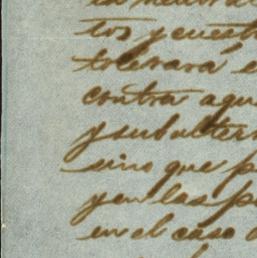 tos y cuest
tolerará e
contra aqu
y subalter
sino que p
y en las p
en el caso